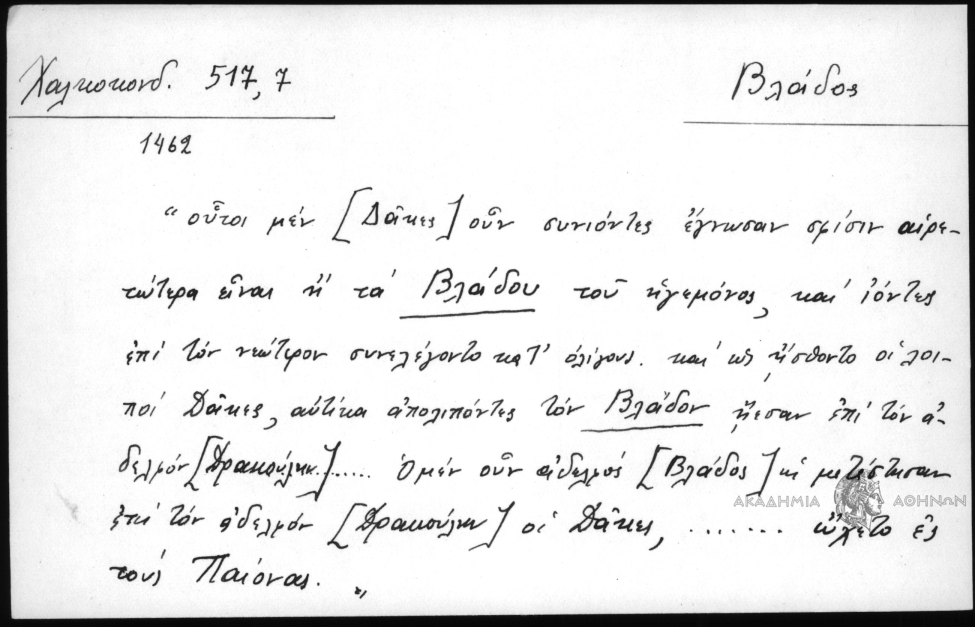 Χαλκοκονδ. 517,7
Βλάδος
1462
“οὗτοι μέν [Δᾶκες] οὖν συνιόντες ἔγνωσαν σφίσιν αἱρε-
τώτερα εἶναι ἤ τά Βλάδου τοῦ ἡγεμόνος, καί ἰόντες
ἐπί τόν νεώτερον συνελέγοντο κατ’ ὀλίγους. καί ὡς ᾔσθοντο οἱ λοι-
ποί Δᾶκες, αὐτίκα ἀπολιπόντες τόν Βλᾶδον ᾔεσαν ἐπί τόν ἀ-
δελφόν [Δρακούλην]...... Ὁ μέν οὖν ἀδελφός [Βλάδος] ᾗ μετέστησαν
ΑΚΑΔΗΜΙΑ ΑΘΗΝΩΝ
ἐπί τόν ἀδελφόν [Δρακούλην] οἱ Δᾶκες, ....... ᾤχετο ἐς
τούς Παίονας. „